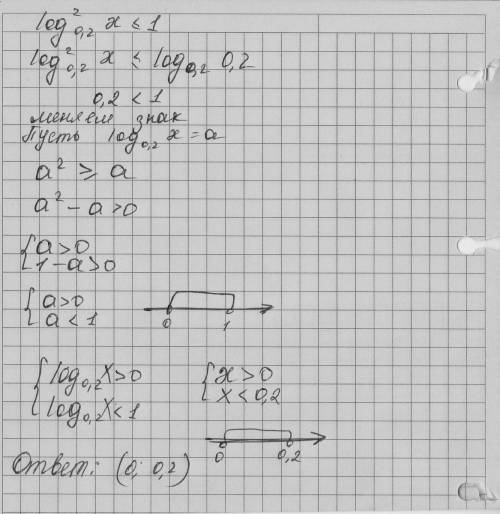 log²₀,₂ x ≤ 1
log²₀,₂ x ≤ log₀,₂ 0,2
0,2 < 1
меняем знак
Пусть log₀,₂ x = a
a² ⩾ a
a² - a > 0
{ a > 0
{ 1 - a > 0
{ a > 0
{ a < 1
0 1
{ log₀,₂ x > 0
{ log₀,₂ x < 1
{ x > 0
{ x < 0,2
0 0,2
Ответ: (0; 0,2)